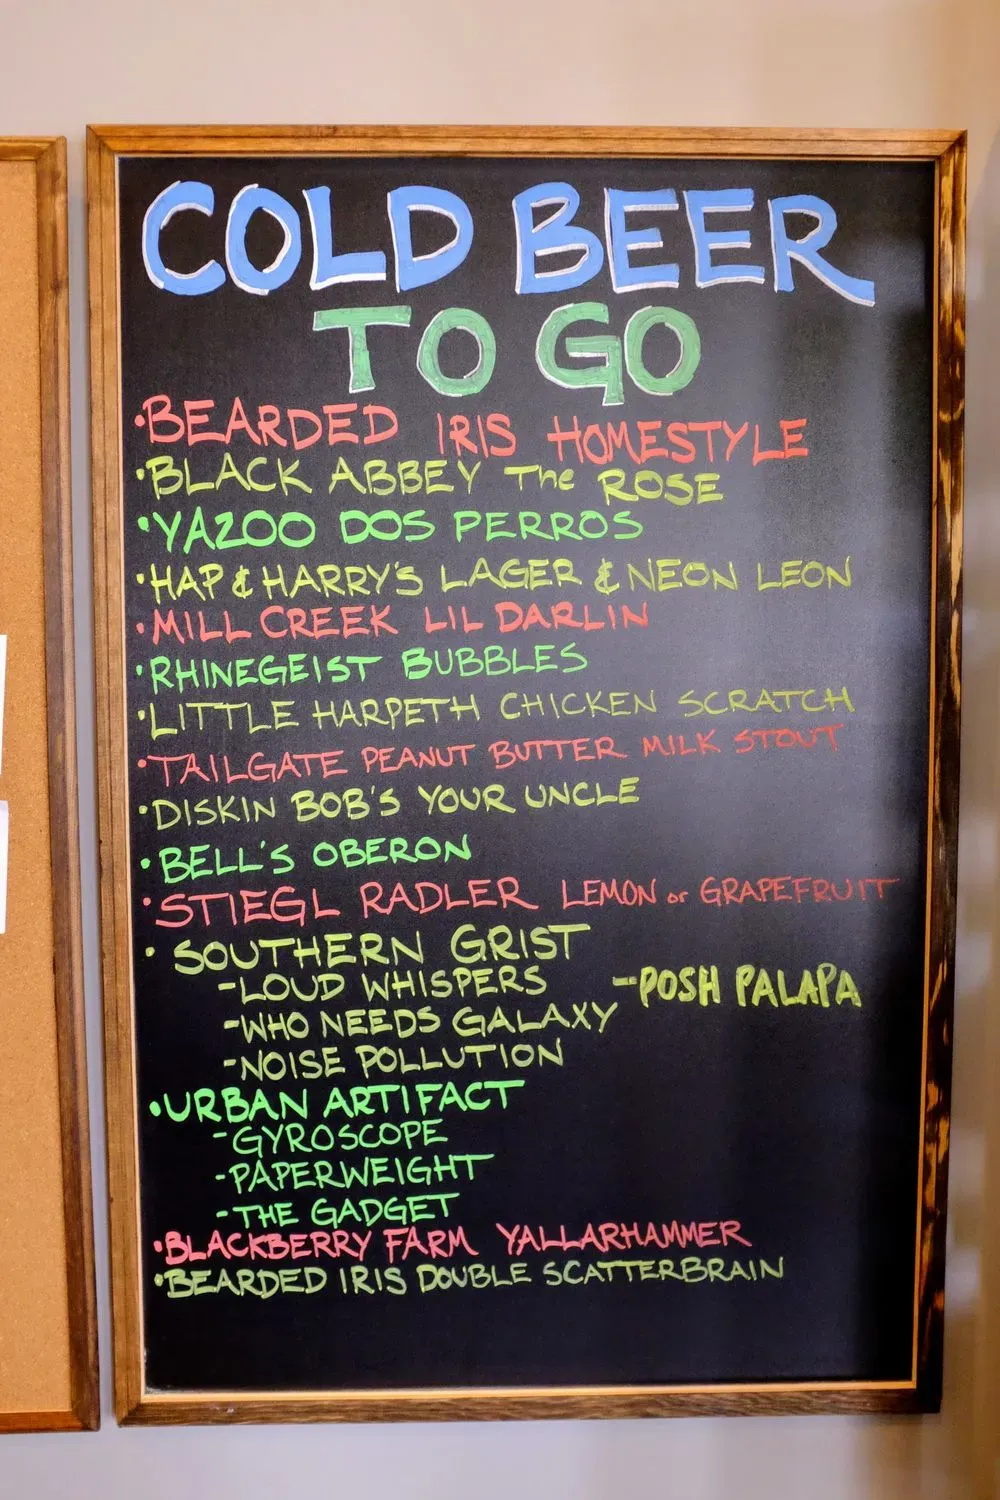 COLD BEER
TO GO
•BEARDED IRIS HOMESTYLE
•BLACK ABBEY The ROSE
•YAZOO DOS PERROS
•HAP & HARRY'S LAGER & NEON LEON
•MILL CREEK LIL DARLIN
•RHINEGEIST BUBBLES
•LITTLE HARPETH CHICKEN SCRATCH
•TAILGATE PEANUT BUTTER MILK STOUT
•DISKIN BOB'S YOUR UNCLE
•BELL'S OBERON
•STIEGL RADLER LEMON or GRAPEFRUIT
•SOUTHERN GRIST
-LOUD WHISPERS -POSH PALAPA
-WHO NEEDS GALAXY
-NOISE POLLUTION
•URBAN ARTIFACT
-GYROSCOPE
-PAPERWEIGHT
-THE GADGET
•BLACKBERRY FARM YALLARHAMMER
•BEARDED IRIS DOUBLE SCATTERBRAIN